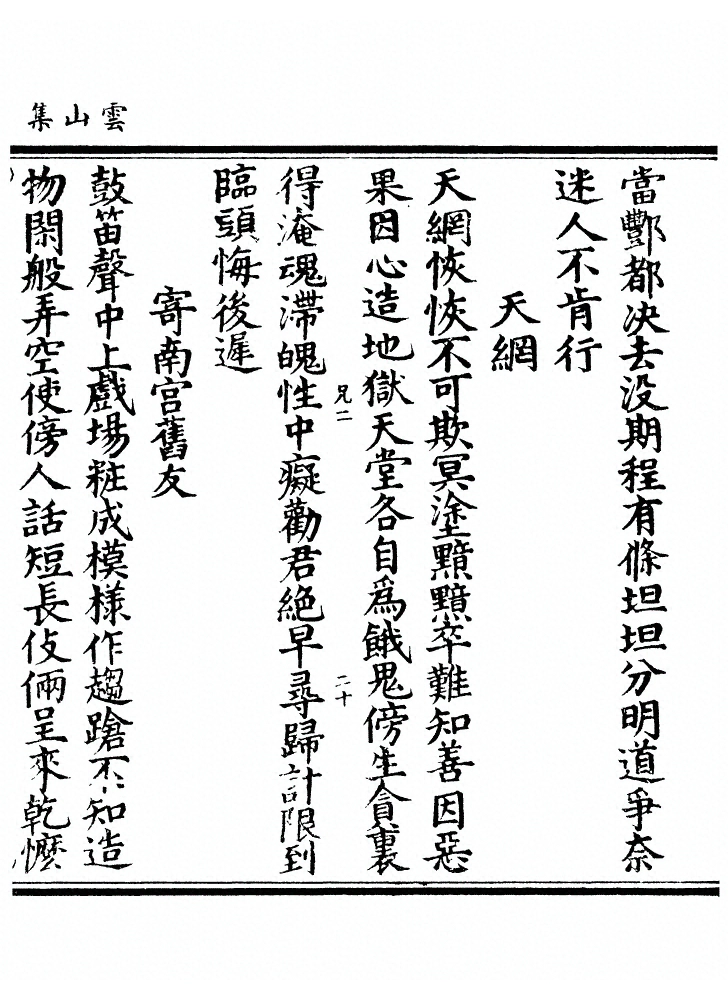 雲山集
當酆都决去没期程有條坦坦分明道爭奈
迷人不肯行
天網
天網恢恢不可欺冥塗黯黯卒難知善因惡
果因心造地獄天堂各自爲餓鬼傍生貪裏
兄二
二十
得淹魂滯魄性中癡勸君絶早尋歸計限到
臨頭悔後遲
寄南宫舊友
鼓笛聲中上戲場粧成模樣作趨蹌不知造
物閑般弄空使傍人話短長伎倆呈來乾㦬